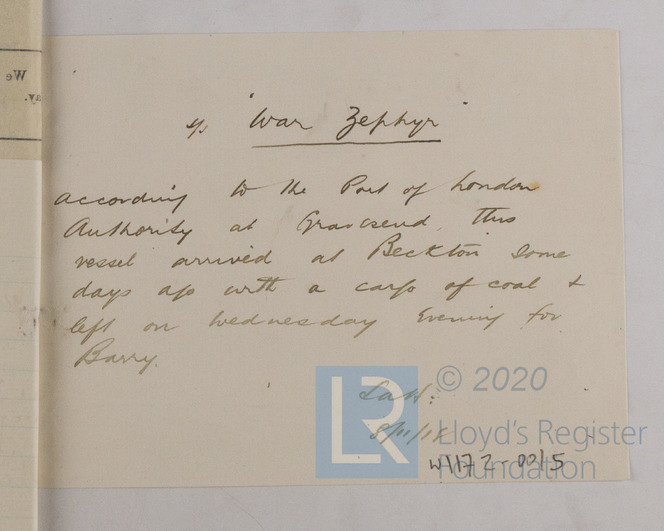 s/s "War Zephyr"
according to the Port of London
Authority at Gravesend, this
vessel arrived at Beckton some
days ago with a cargo of coal &
left on Wednesday Evening for
Barry.
8/11/18
W1172-0015
LR
© 2020
Lloyd's Register
Foundation
We